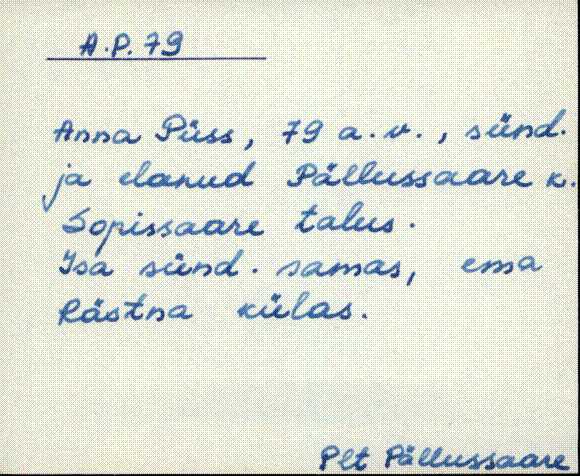 A.P. 79
Anna Püss, 79 a.v., sünd.
ja elanud Pällussaare k.
Sopissaare talus.
Isa sünd. samas, ema
Rästna külas.
Plt Pällussaare